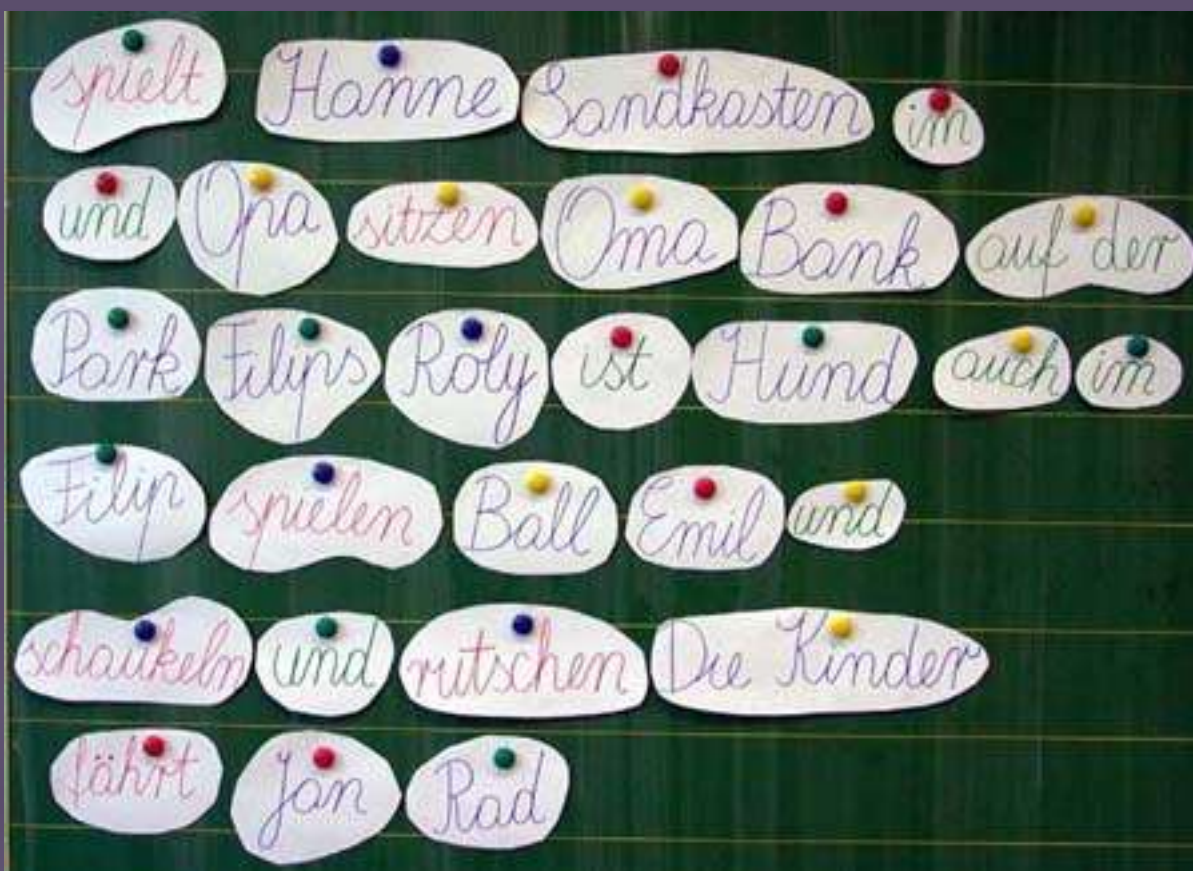 spielt Hanne Sandkasten im
und Opa sitzen Oma Bank auf der
Park Filips Roly ist Hund auch im
Filip spielen Ball Emil und
schaukeln und rutschen Die Kinder
fährt Jan Rad